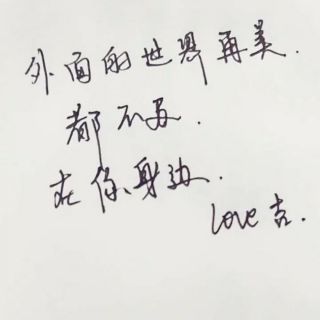 外面的世界再美.
都不及.
在你身边.
Love 吉.